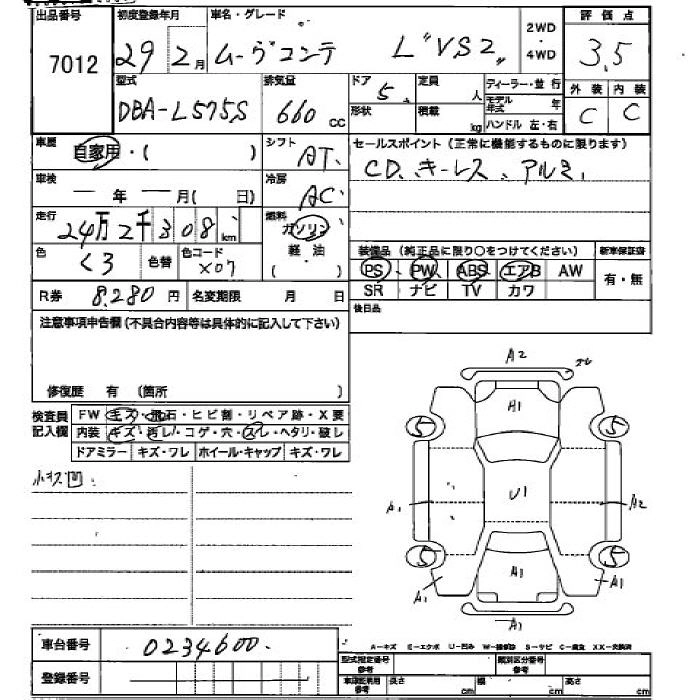 出品番号 初度登録年月 車名・グレード 2WD・4WD 評価点
7012 29年2月 ムーヴコンテ L"VS2" 3.5
型式 排気量 ドア 定員 ディーラー・並行 外装 内装
DBA-L575S 660cc 5 人 モデル年式 年 C C
形状 積載 kg ハンドル 左・右
車歴 自家用・( ) シフト AT セールスポイント(正常に機能するものに限ります)
CD、キーレス、アルミ
車検 年 月(日) 冷房 AC
走行 24万2千308km 燃料 ガソリン
軽油
色 くろ 色替 色コード X07 装備品(純正品に限り○をつけてください) 新車保証書
PS PW ABS エアB AW 有・無
R券 8,280円 名変期限 月 日 SR ナビ TV カワ
注意事項申告欄(不具合内容等は具体的に記入して下さい) 後日品
修復歴 有 (箇所 )
検査員記入欄 FW キズ・飛石・ヒビ割・リペア跡・X要
内装 キズ・汚レ・コゲ・穴・スレ・ヘタリ・破レ
ドアミラー キズ・ワレ ホイール・キャップ キズ・ワレ
小キズ凹
A2
A1
5 5
U1
A1 A2
5 5
A1
A1 A1
A1
車台番号 0234600
A-キズ E-エクボ U-凹み W-補修跡 S-サビ C-腐食 XX-交換済
登録番号 型式指定番号 参考 類別区分番号 参考
車庫証明用 参考 長さ cm 幅 cm 高さ cm